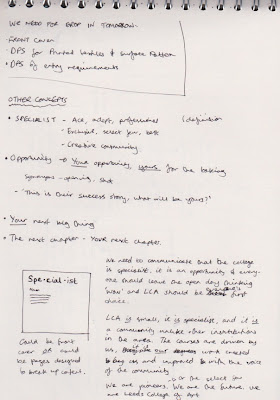 WE NEED FOR DROP IN TOMORROW-
-FRONT Cover
• DPS for Printed textiles & Surface Pattern
• DPS of entry requirements
OTHER CONCEPTS
• SPECIALIST - Ace, adept, professional (definition
- Exclusive, select few, best
- Creative community
• Opportunity → Your opportunity, yours for the taking
synonyms - opening, shot
- 'This is their success story, what will be yours?'
• Your next big thing
• The next chapter - YOUR next chapter.
Spe-cial-ist
Could be front
cover OR could
be pages designed
to break up content.
We need to communicate that the college
is specialist, it is an opportunity & every-
one should leave the open day thinking
'wow' and LCA should be first
choice.
LCA is small, it is specialist, and it is
a community unlike other institutions
in the area. The courses are driven by
us, work created
by us and informed with the voice
of the community
We are pioneers. We are the future, we
are Leeds College of Art